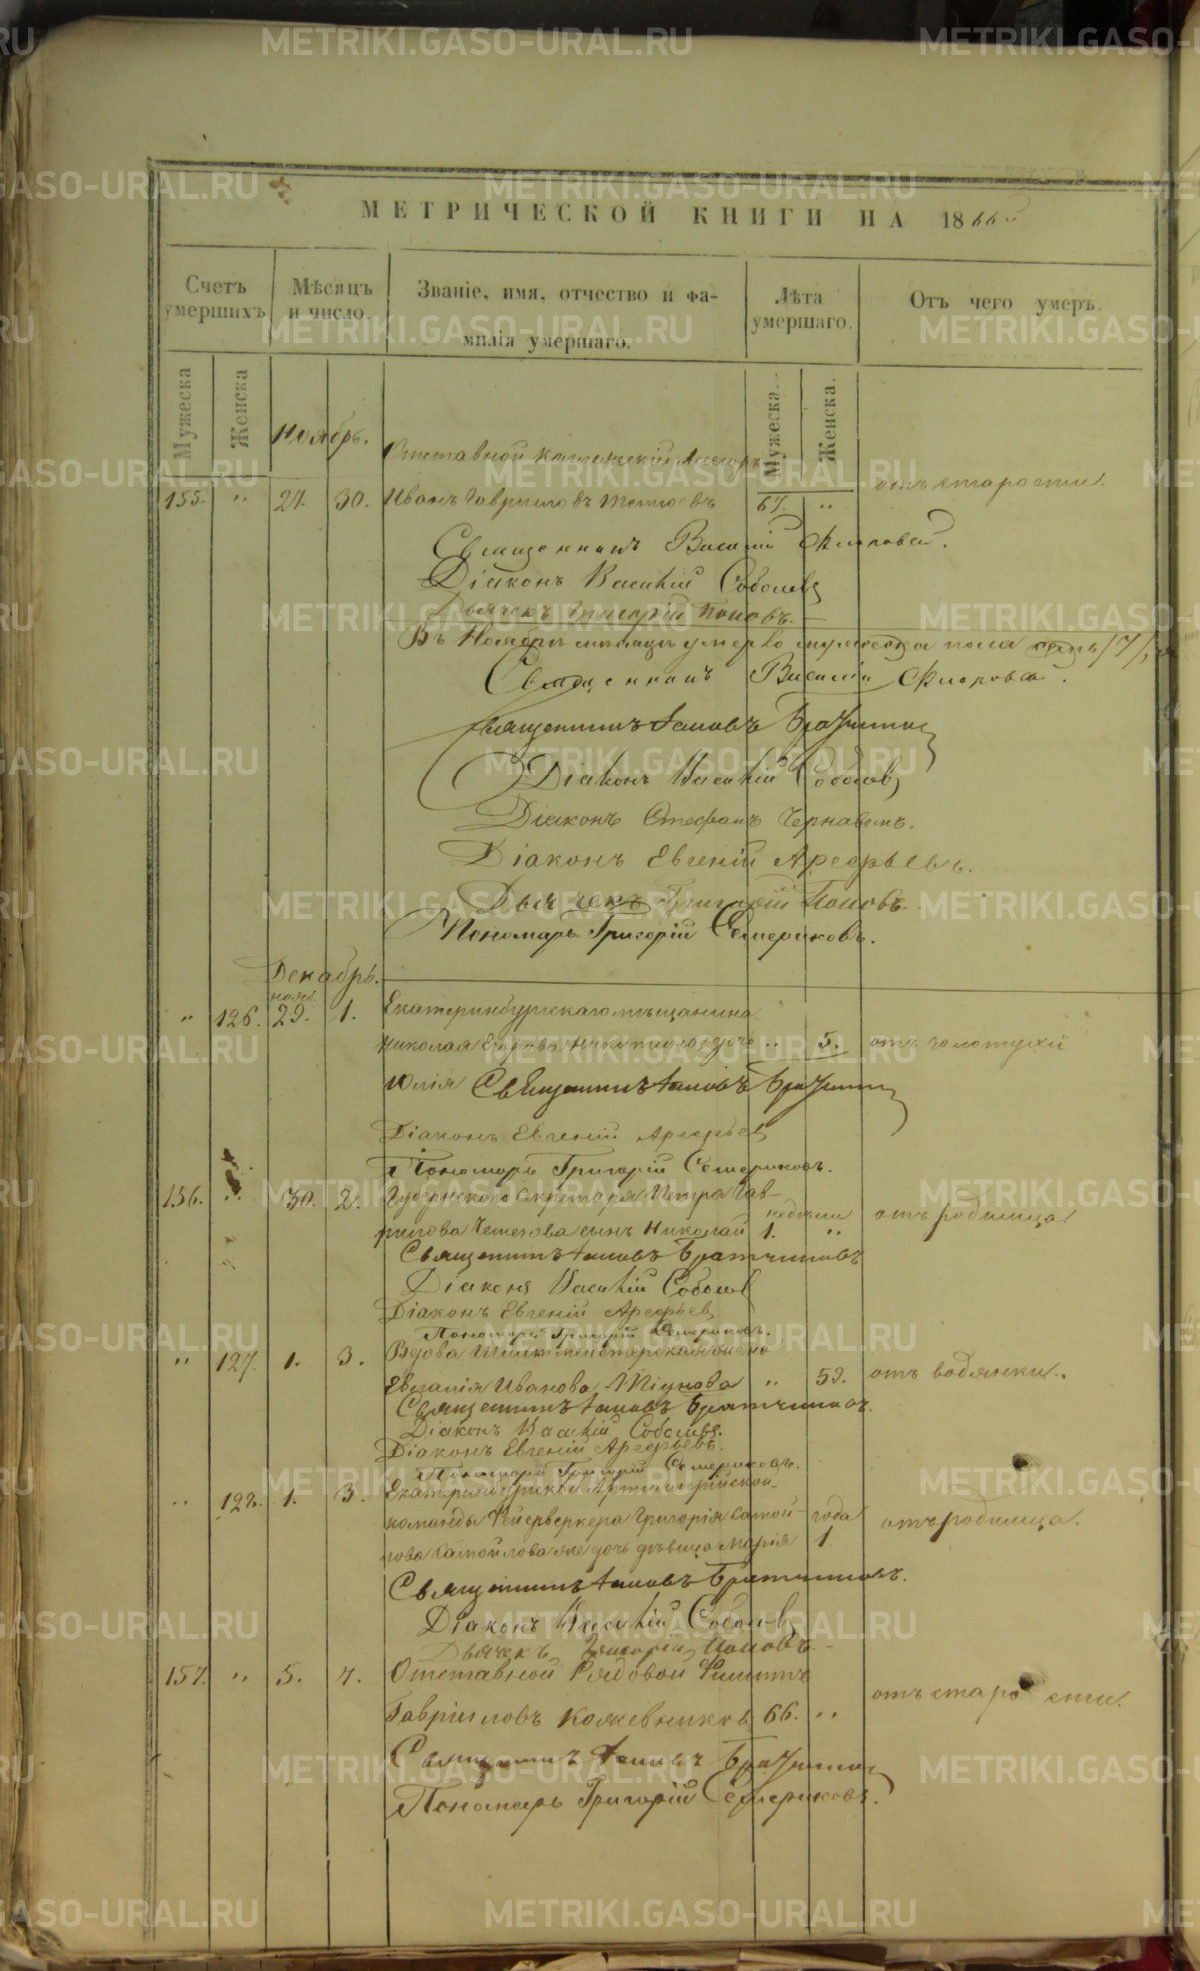 МЕТРИЧЕСКОЙ КНИГИ НА 1866
Счетъ умершихъ.
Мѣсяцъ и число.
Званіе, имя, отчество и фамилія умершаго.
Лѣта умершаго.
Отъ чего умеръ.
Мужеска
Женска
Мужеска.
Женска.
Ноябрь.
Отставной Коллежскій Асесоръ
155. " 27. 30. Иванъ Гавриловъ 67. " отъ старости.
Священникъ Василій Флоровскій.
Діаконъ Василій Соболевъ
Дьячекъ Григорій Поповъ.
Въ Ноябрѣ умерло мужеска пола семь /7/,
Священникъ Василій Флоровск.
Священникъ Іаковъ
Діаконъ Василій Соболевъ
Діаконъ Стефанъ
Діаконъ Евгеній Арефьевъ.
Дьячекъ Григорій Поповъ.
Пономарь Григорій Семериковъ.
Декабрь.
нояб.
" 126. 29. 1. Екатеринбургскаго мѣщанина
Николая Егорова Никитина дочь " 5. отъ золотухи
Юлія Священникъ Іаковъ
Діаконъ Евгеній Арефьевъ
Пономарь Григорій Семериковъ.
156. " 30. 2. Губернскаго Секретаря Петра Гав-
недѣли
рилова сынъ Николай 1. " отъ родимца.
Священникъ Іаковъ Братчиковъ
Діаконъ Василій Соболев
Діаконъ Евгеній Арефьев
Пономарь Григорій Семериковъ.
" 127. 1. 3. Вдова Шихтмейстерская жена
Евгенія Иванова " 59. отъ водянки.
Священникъ Іаковъ Братчиковъ.
Діаконъ Василій Соболевъ.
Діаконъ Евгеній Арефьевъ.
Пономарь Григорій Семериковъ.
" 128. 1. 3. Екатеринбургской Артиллерійской
команды Фейерверкера Григорія Самой- года
лова Самойлова же дочь дѣвица Марія 1. отъ родимца.
Священникъ Іаковъ Братчиковъ.
Діаконъ Василій Соболев
Дьячекъ Григорій Поповъ.
157. " 5. 7. Отставной Рядовой Филиппъ
Гавриловъ Кожевников 66. " отъ старости.
Священникъ Іаковъ
Пономарь Григорій Семериковъ.
METRIKI.GASO-URAL.RU